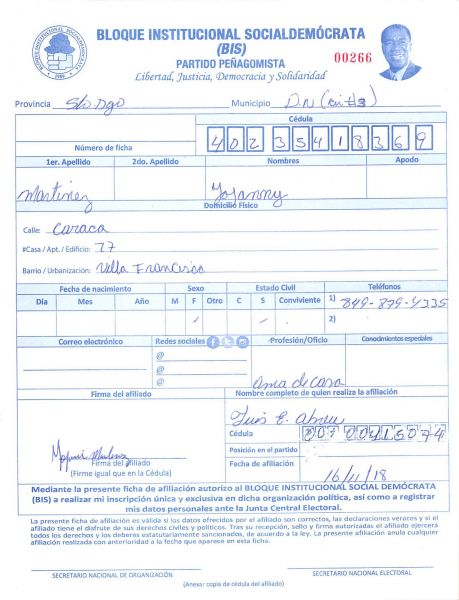 BLOQUE INSTITUCIONAL SOCIALDEMÓCRATA
(BIS)
PARTIDO PEÑAGOMISTA
00266
Libertad, Justicia, Democracia y Solidaridad
Provincia Sto. Dgo Municipio D.N (Cir. #3)
Cédula
Número de ficha 402 3541836 9
1er. Apellido 2do. Apellido Nombres Apodo
Martinez Yojanny
Domicilio Físico
Calle: Caraca
#Casa / Apt. / Edificio: 77
Barrio / Urbanización: Villa Francisca
Fecha de nacimiento Sexo Estado Civil Teléfonos
Día Mes Año M F Otro C S Conviviente 1) 849-879-4335
2)
Correo electrónico Redes sociales Profesión/Oficio Conocimientos especiales
@
@
@ Ama de casa
Firma del afiliado Nombre completo de quien realiza la afiliación
Luis E. Abreu
Cédula 001 0041507 4
Posición en el partido
Firma del afiliado
(Firme igual que en la Cédula)
Fecha de afiliación 16/11/18
Mediante la presente ficha de afiliación autorizo al BLOQUE INSTITUCIONAL SOCIAL DEMÓCRATA
(BIS) a realizar mi inscripción única y exclusiva en dicha organización política, así como a registrar
mis datos personales ante la Junta Central Electoral.
La presente ficha de afiliación es válida si los datos ofrecidos por el afiliado son correctos, las declaraciones veraces y si el afiliado
tiene el disfrute de sus derechos civiles y políticos. Tras su recepción, sello y firma autorizadas el afiliado ejercerá
todos los derechos y los deberes estatutariamente sancionados, de acuerdo a la ley. La presente afiliación anula cualquier
afiliación realizada con anterioridad a la fecha que aparece en esta ficha.
SECRETARIO NACIONAL DE ORGANIZACIÓN SECRETARIO NACIONAL ELECTORAL
(Anexar copia de cédula del afiliado)